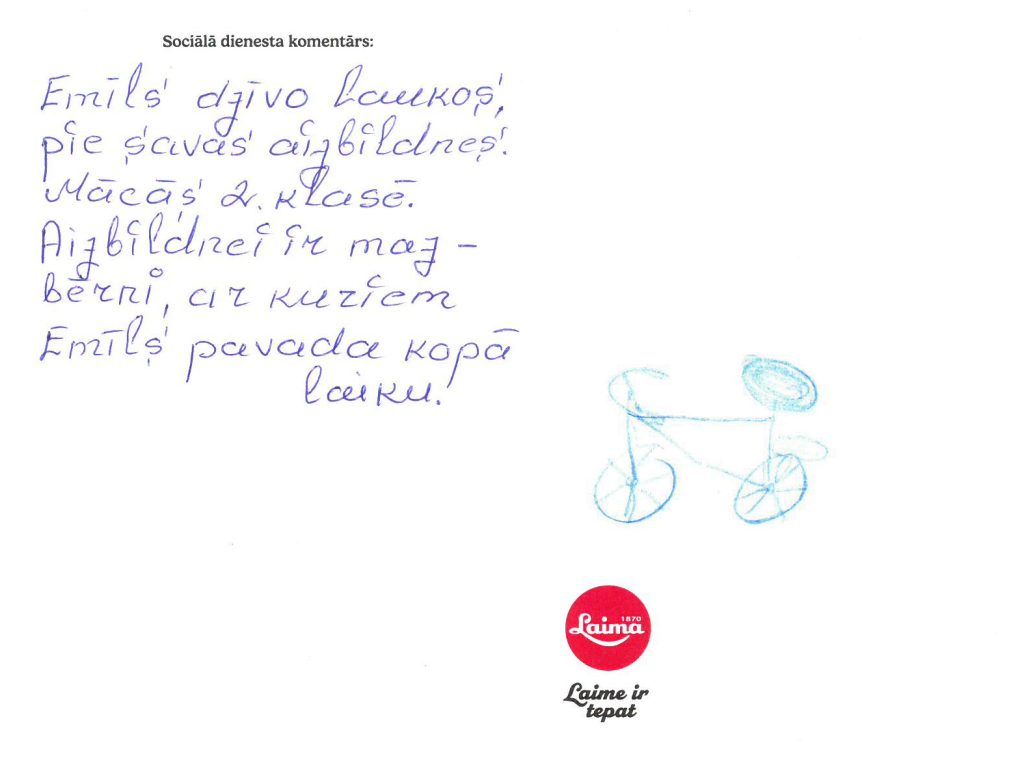 Sociālā dienesta komentārs:
Emīls dzīvo laukos,
pie savas aizbildnes.
Mācās 2. klasē.
Aizbildnei ir maz-
bērni, ar kuriem
Emīls pavada kopā
laiku.
1870
Laima
Laime ir
tepat